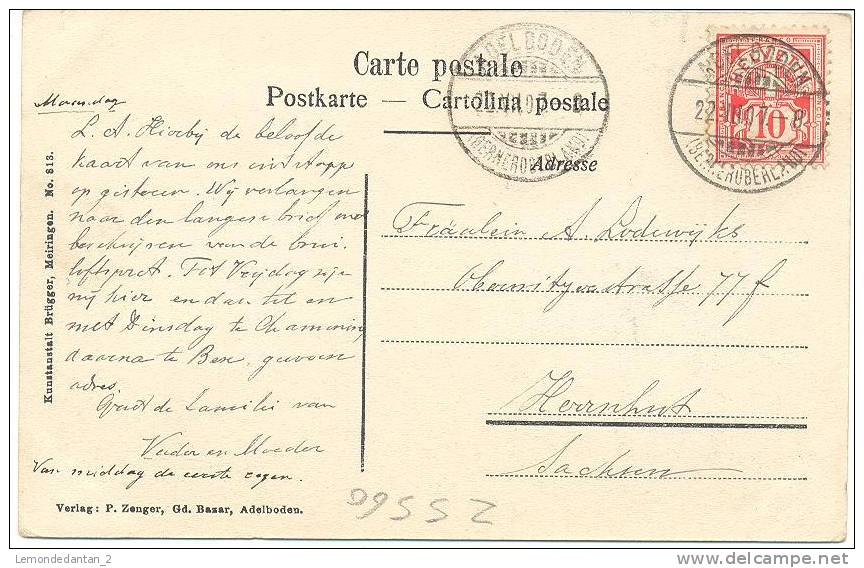 Carte postale
Postkarte — Cartolina postale
Adresse
ADELBODEN
22.VII.07. 8
(BERNEROBERLAND)
HELVETIA
10
22.VII.07. 8
(BERNEROBERLAND)
Maandag
L. A. Hierbij de beloofde
kaart van ons
op gisteren. Wij verlangen
naar den langen brief met
beschrijven van de brui-
loftspret. Tot Vrijdag zijn
wij hier en dan tot en
met Dinsdag te Chamonix
daarna te Bex, gewoon
adres.
Groet de familie van
Vader en Moeder
Van middag de eerste regen.
Fräulein A. Lodewijks
77f
Herrnhut
Sachsen
Kunstanstalt Brügger, Meiringen. No. 813.
Verlag: P. Zenger, Gd. Bazar, Adelboden.
25560
Lemondedantan_2
delcampe.net